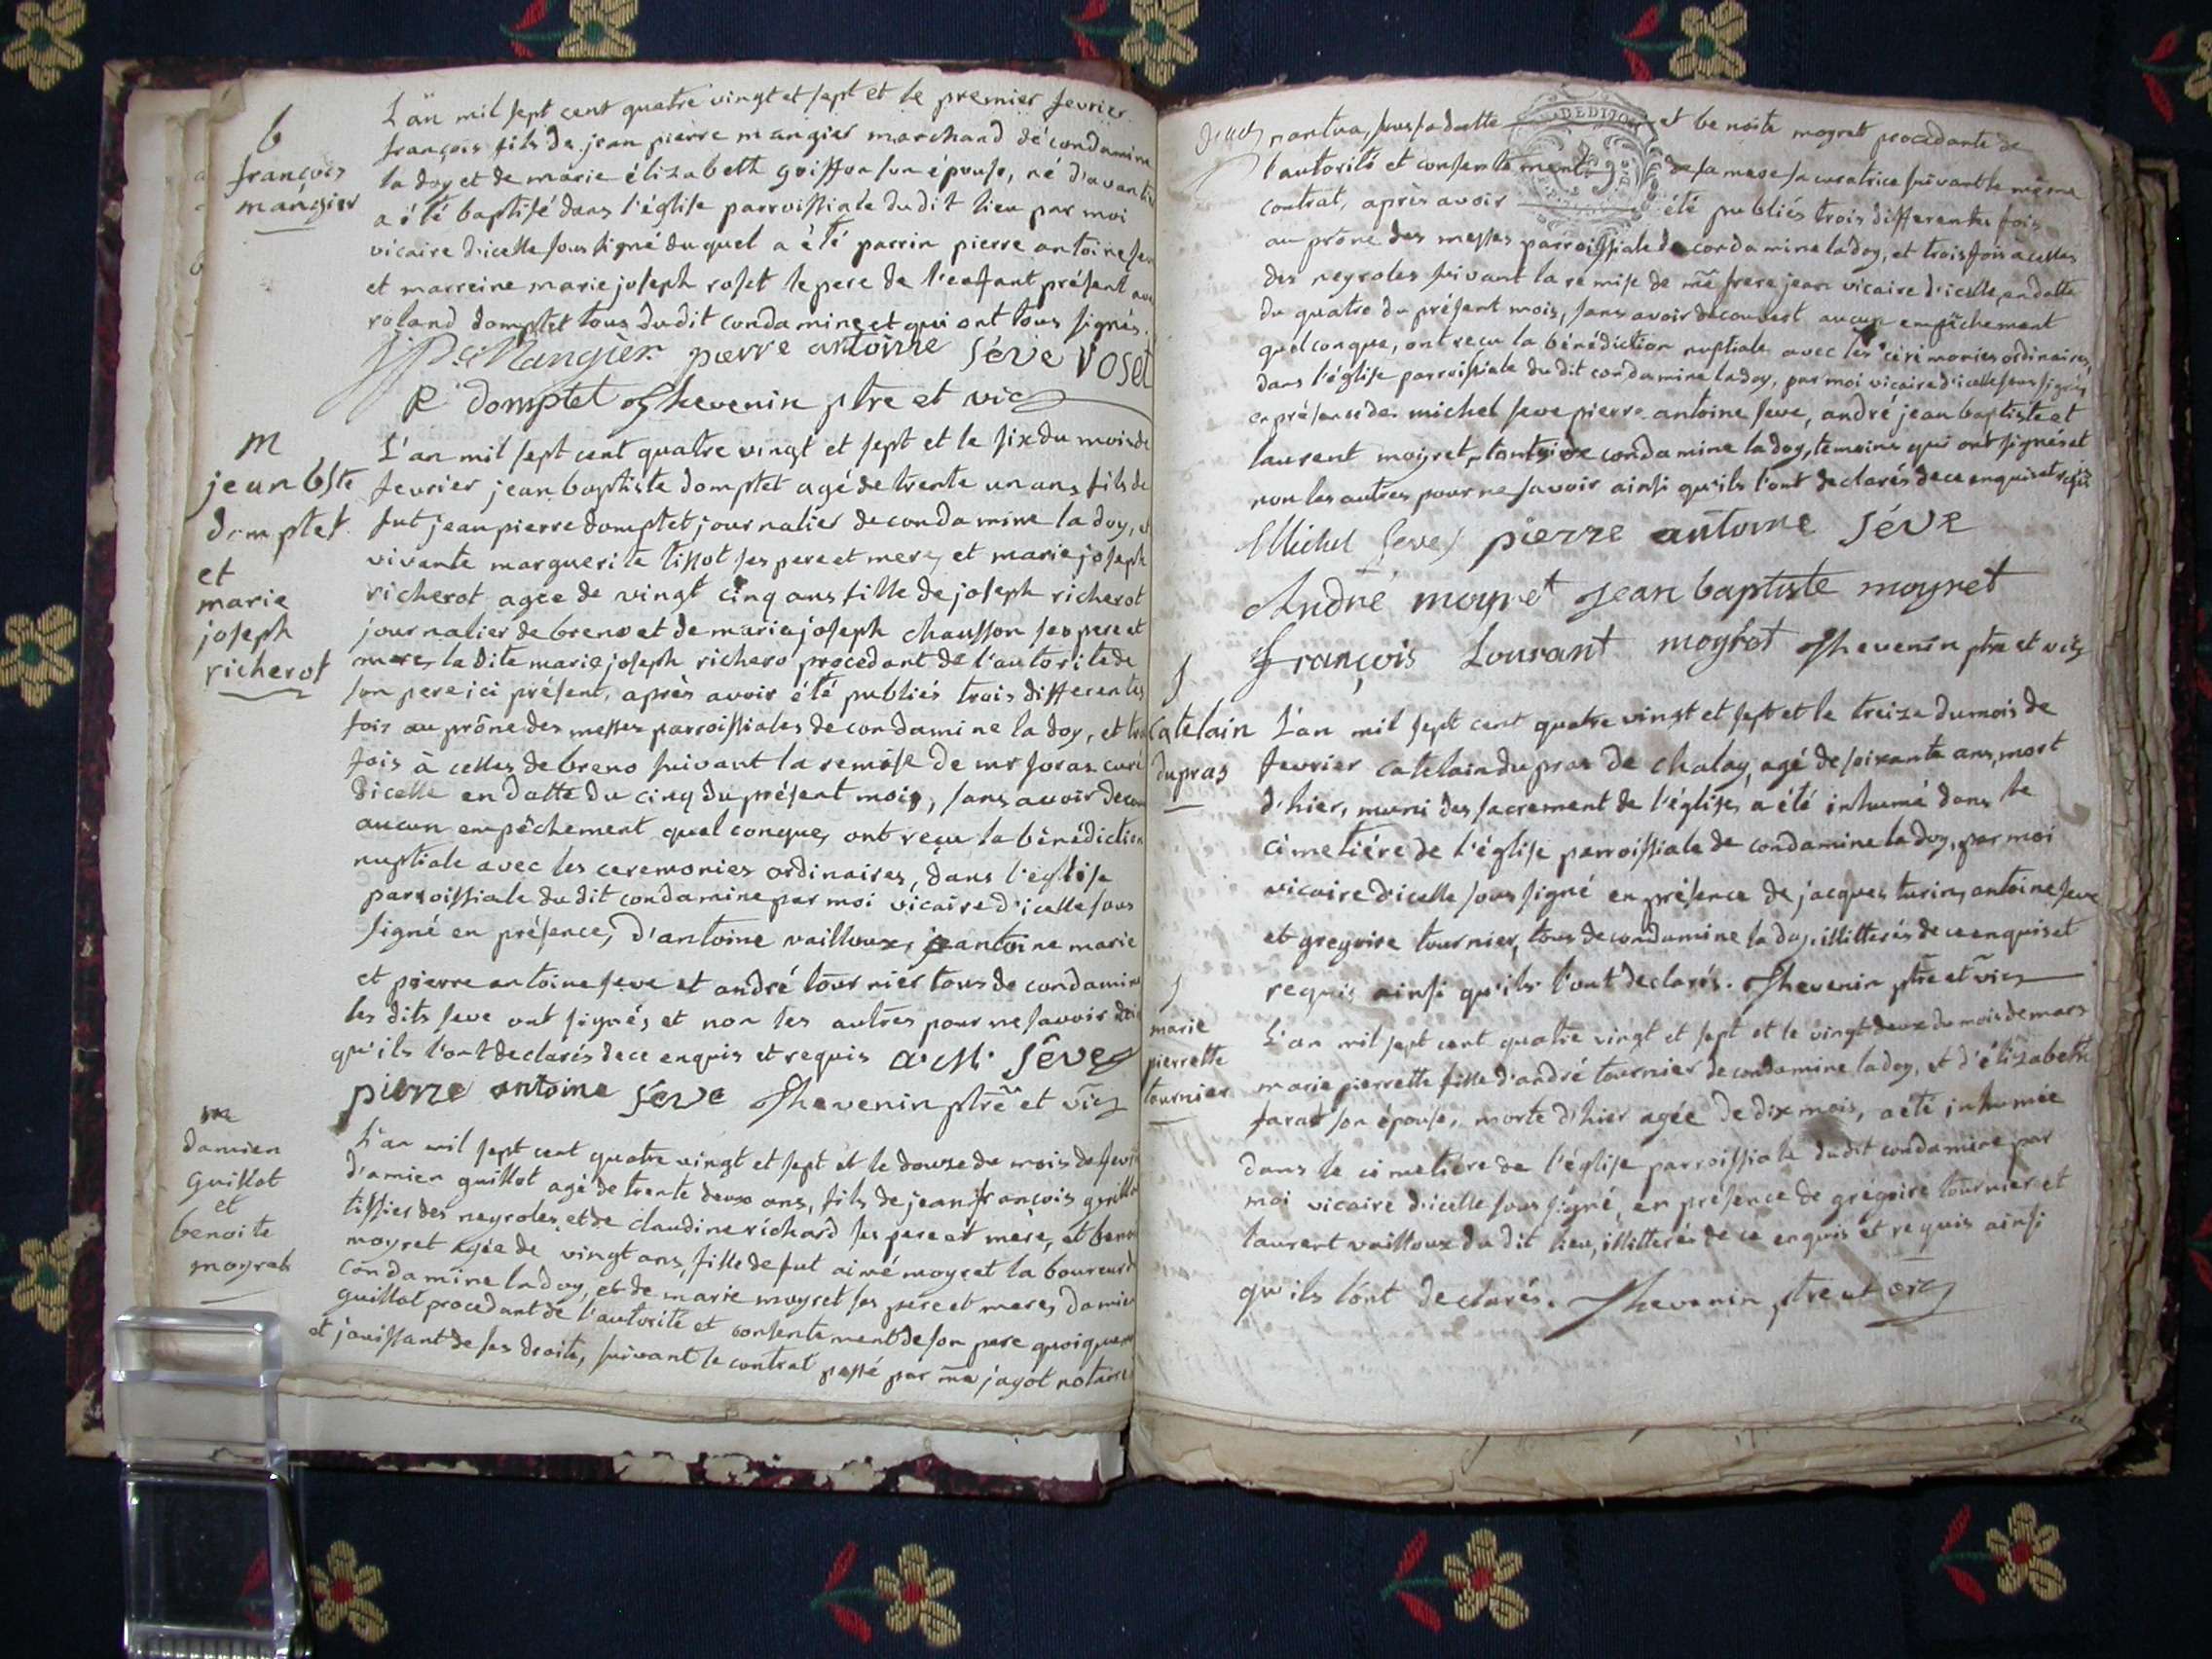 b
françois
mangier
L'an mil sept cent quatre vingt et sept et le premier fevrier
françois fils de jean pierre mangier marchand de condamine
la doy et de marie élizabeth goiffon son épouse, né d'avant
a été baptisé dans l'église parroissiale du dit lieu par moi
vicaire d'icelle sous signé du quel a été parrin pierre antoine
et marreine marie joseph roset le pere de l'enfant présent
roland domptet tous dudit condamine et qui ont tous signés.
Mangier pierre antoine séve roset
R domptet Thevenin ptre et vic
m
jean bste
domptet
et
marie
joseph
richerot
L'an mil sept cent quatre vingt et sept et le six du mois de
fevrier jean baptiste domptet agé de trente un ans fils de
fut jean pierre domptet journalier de condamine la doy, et
vivante marguerite tissot ses pere et mere, et marie joseph
richerot agée de vingt cinq ans fille de joseph richerot
journalier de breno et de marie joseph chausson ses pere et
mere, la dite marie joseph richero procedant de l'autorite de
son pere ici présent, après avoir été publiés trois differentes
fois au prône des messes parroissiales de condamine la doy, et
fois à celles de breno suivant la remise de mr joras curé
d'icelle en datte du cinq du présent mois, sans avoir
aucun empêchement quel conque, ont reçu la bénédiction
nuptiale avec les ceremonies ordinaires, dans l'église
parroissiale du dit condamine par moi vicaire d'icelle sous
signé en présence, d'antoine vailloux, antoine marie
et pierre antoine seve et andré tournier tous de condamine
les dits seve ont signés et non les autres pour ne savoir
qu'ils l'ont declarés de ce enquis et requis a.M. Sêve
pierre antoine séve Thevenin ptre et vic
m
damien
guillot
et
benoite
moyret
L'an mil sept cent quatre vingt et sept et le douze du mois de
d'amien guillot agé de trente deux ans, fils de jean françois
tissier des neyroles, et de claudine richard ses pere et mere, et
moyret agée de vingt ans, fille de fut aimé moyret laboureur
condamine la doy, et de marie moyret ses pere et meres, damien
guillot procedant de l'autorité et consentement de son pere quoique
et jouissant de ses droits, suivant le contrat passé par me jagot notaire
nantua, sous sa datte et benoite moyret procedante de
l'autorité et consentement de sa mere sa curatrice suivant le même
contrat, après avoir été publiés trois differentes fois
au prône des messes parroissiale de condamine la doy, et trois fois a celles
des neyroles suivant la remise de me frere jean vicaire d'icelle en datte
du quatre du présent mois, sans avoir decouvert aucun empêchement
quelconque, ont reçu la bénédiction nuptiale avec les cérimonies ordinaires,
dans l'église parroissiale du dit condamine la doy, par moi vicaire d'icelle sous signé
en présence de michel seve pierre antoine seve, andré jean baptiste et
laurent moyret, tous de condamine la doy, temoins qui ont signés et
non les autres pour ne savoir ainsi qu'ils l'ont declarés de ce enquis et requis
Michel Seve pierre antoine séve
André moyret Jean baptiste moynet
François Lourant moyrot Thevenin ptre et vic
Catelain
dupras
L'an mil sept cent quatre vingt et sept et le treize du mois de
fevrier catelain dupras de chalay, agé de soixante ans, mort
d'hier, muni des sacrement de l'église, a été inhumé dans le
cimetiére de l'église parroissiale de condamine la doy, par moi
vicaire d'icelle sous signé en présence de jacques turin, antoine seve
et gregoire tournier, tous de condamine la doy, illitterés de ce enquis et
requis ainsi qu'ils l'ont declarés. Thevenin ptre et vic
marie
pierrette
tournier
L'an mil sept cent quatre vingt et sept et le vingt deux du mois de mars
marie pierrette fille d'andré tournier de condamine la doy, et d'élizabeth
son épouse, morte d'hier agée de dix mois, a été inhumée
dans le cimetière de l'église parroissiale dudit condamine par
moi vicaire d'icelle sous signé, en présence de grégoire tournier et
laurent vailloux du dit lieu, illitterés de ce enquis et requis ainsi
qu'ils l'ont declarés. Thevenin ptre et vic